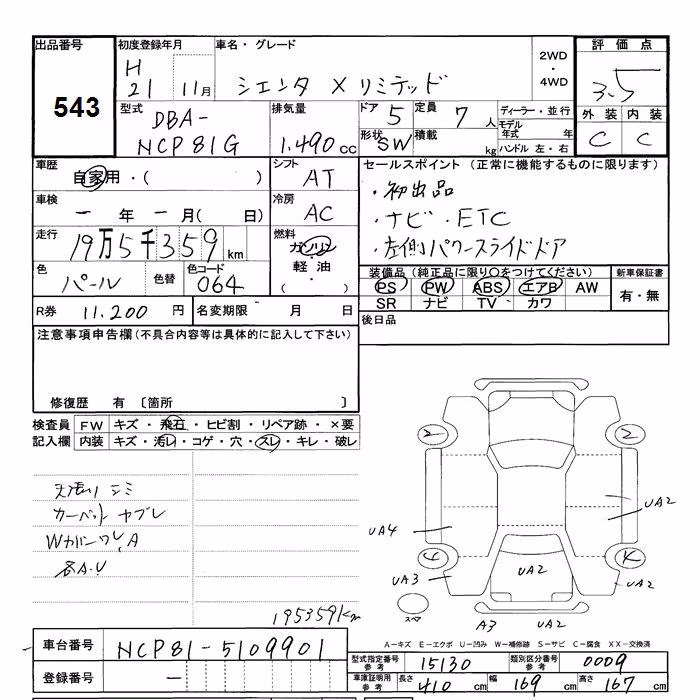 出品番号 初度登録年月 車名・グレード 2WD・4WD 評価点
543
H 21 11月 シエンタ X リミテッド 3.5
型式 DBA-NCP81G 排気量 1,490cc ドア 5 定員 7人 ディーラー・並行 外装 内装
形状 SW 積載 kg モデル年式 年 C C
ハンドル 左・右
車歴 自家用・( ) シフト AT セールスポイント (正常に機能するものに限ります)
車検 ー年ー月( 日) 冷房 AC ・初出品
・ナビ・ETC
・左側パワースライドドア
走行 19万5千359km 燃料 ガソリン・軽油・( )
色 パール 色替 色コード 064
装備品(純正品に限り○をつけてください) 新車保証書
PS PW ABS エアB AW 有・無
SR ナビ TV カワ
R券 11,200円 名変期限 月 日 後日品
注意事項申告欄(不具合内容等は具体的に記入して下さい)
修復歴 有 〔箇所 〕
検査員 FW キズ・飛石・ヒビ割・リペア跡・×要
記入欄 内装 キズ・汚レ・コゲ・穴・スレ・キレ・破レ
天張リ シミ
カーペット ヤブレ
各A.U
2 2
UA2
UA4
4
UA3 UA2 UA2
スペア A3 UA2
195359km
A-キズ E-エクボ U-凹み W-補修跡 S-サビ C-腐食 XX-交換済
車台番号 NCP81-5109901
型式指定番号 参考 15130 類別区分番号 参考 0009
登録番号 ー
車庫証明用 参考 長さ 410cm 幅 169cm 高さ 167cm